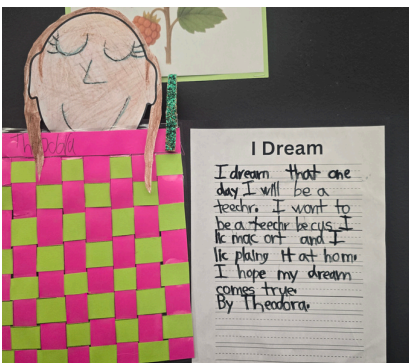 Theodora
I Dream
I dream that one
day I will be a
teechr. I wont to
be a teechr becys I
lic mac art and I
lic plainy it at hom.
I hope my dream
comes true.
By Theodora.